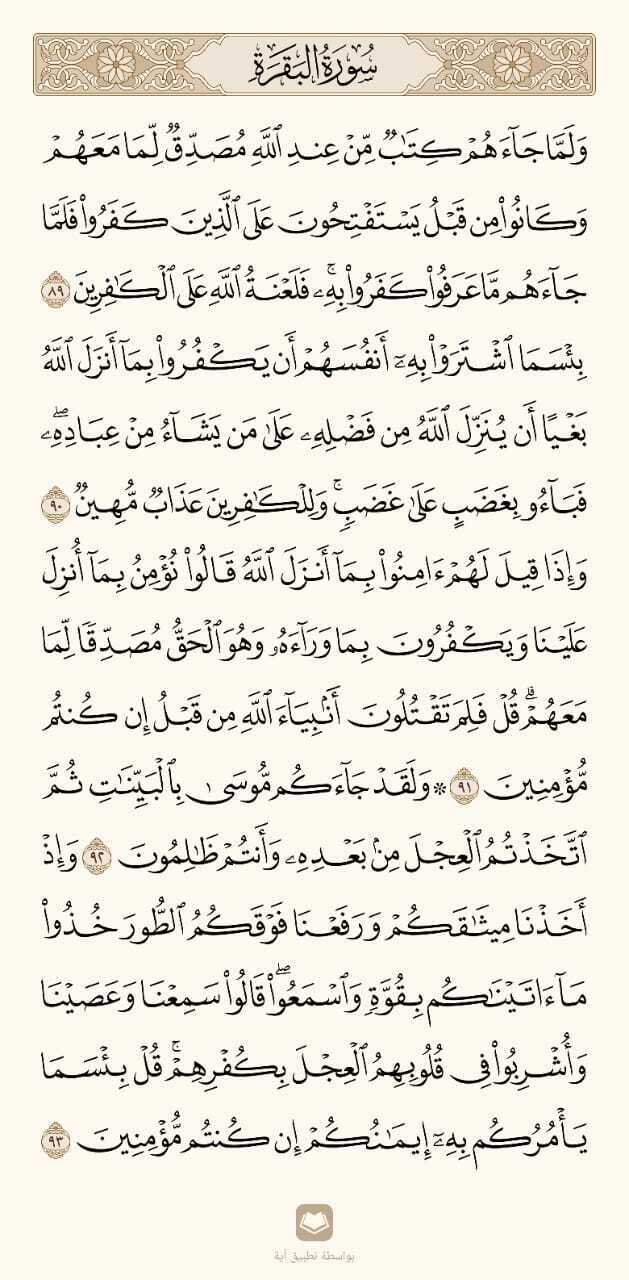 سُورَةُ البَقَرَةِ
وَلَمَّا جَآءَهُمْ كِتَٰبٌ مِّنْ عِندِ ٱللَّهِ مُصَدِّقٌ لِّمَا مَعَهُمْ
وَكَانُوا۟ مِن قَبْلُ يَسْتَفْتِحُونَ عَلَى ٱلَّذِينَ كَفَرُوا۟ فَلَمَّا
جَآءَهُم مَّا عَرَفُوا۟ كَفَرُوا۟ بِهِۦۚ فَلَعْنَةُ ٱللَّهِ عَلَى ٱلْكَٰفِرِينَ ٨٩
بِئْسَمَا ٱشْتَرَوْا۟ بِهِۦٓ أَنفُسَهُمْ أَن يَكْفُرُوا۟ بِمَآ أَنزَلَ ٱللَّهُ
بَغْيًا أَن يُنَزِّلَ ٱللَّهُ مِن فَضْلِهِۦ عَلَىٰ مَن يَشَآءُ مِنْ عِبَادِهِۦۖ
فَبَآءُو بِغَضَبٍ عَلَىٰ غَضَبٍۚ وَلِلْكَٰفِرِينَ عَذَابٌ مُّهِينٌ ٩٠
وَإِذَا قِيلَ لَهُمْ ءَامِنُوا۟ بِمَآ أَنزَلَ ٱللَّهُ قَالُوا۟ نُؤْمِنُ بِمَآ أُنزِلَ
عَلَيْنَا وَيَكْفُرُونَ بِمَا وَرَآءَهُۥ وَهُوَ ٱلْحَقُّ مُصَدِّقًا لِّمَا
مَعَهُمْۗ قُلْ فَلِمَ تَقْتُلُونَ أَنۢبِيَآءَ ٱللَّهِ مِن قَبْلُ إِن كُنتُم
مُّؤْمِنِينَ ٩١ * وَلَقَدْ جَآءَكُم مُّوسَىٰ بِٱلْبَيِّنَٰتِ ثُمَّ
ٱتَّخَذْتُمُ ٱلْعِجْلَ مِنۢ بَعْدِهِۦ وَأَنتُمْ ظَٰلِمُونَ ٩٢ وَإِذْ
أَخَذْنَا مِيثَٰقَكُمْ وَرَفَعْنَا فَوْقَكُمُ ٱلطُّورَ خُذُوا۟
مَآ ءَاتَيْنَٰكُم بِقُوَّةٍ وَٱسْمَعُوا۟ۖ قَالُوا۟ سَمِعْنَا وَعَصَيْنَا
وَأُشْرِبُوا۟ فِى قُلُوبِهِمُ ٱلْعِجْلَ بِكُفْرِهِمْۚ قُلْ بِئْسَمَا
يَأْمُرُكُم بِهِۦٓ إِيمَٰنُكُمْ إِن كُنتُم مُّؤْمِنِينَ ٩٣
بواسطة تطبيق آية